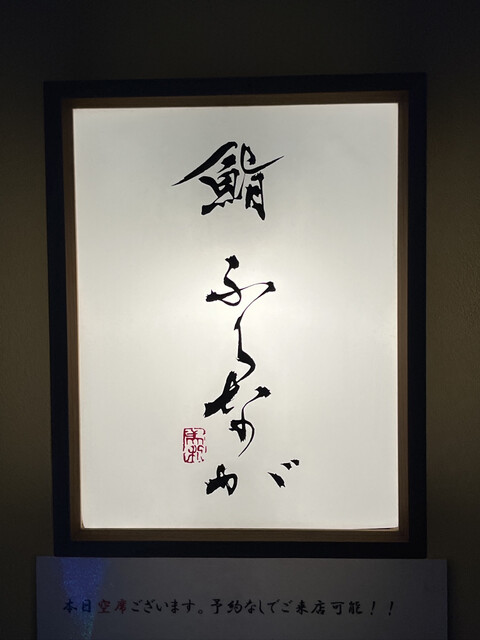 鮨 ふくなが
本日空席ございます。予約なしでご来店可能！！